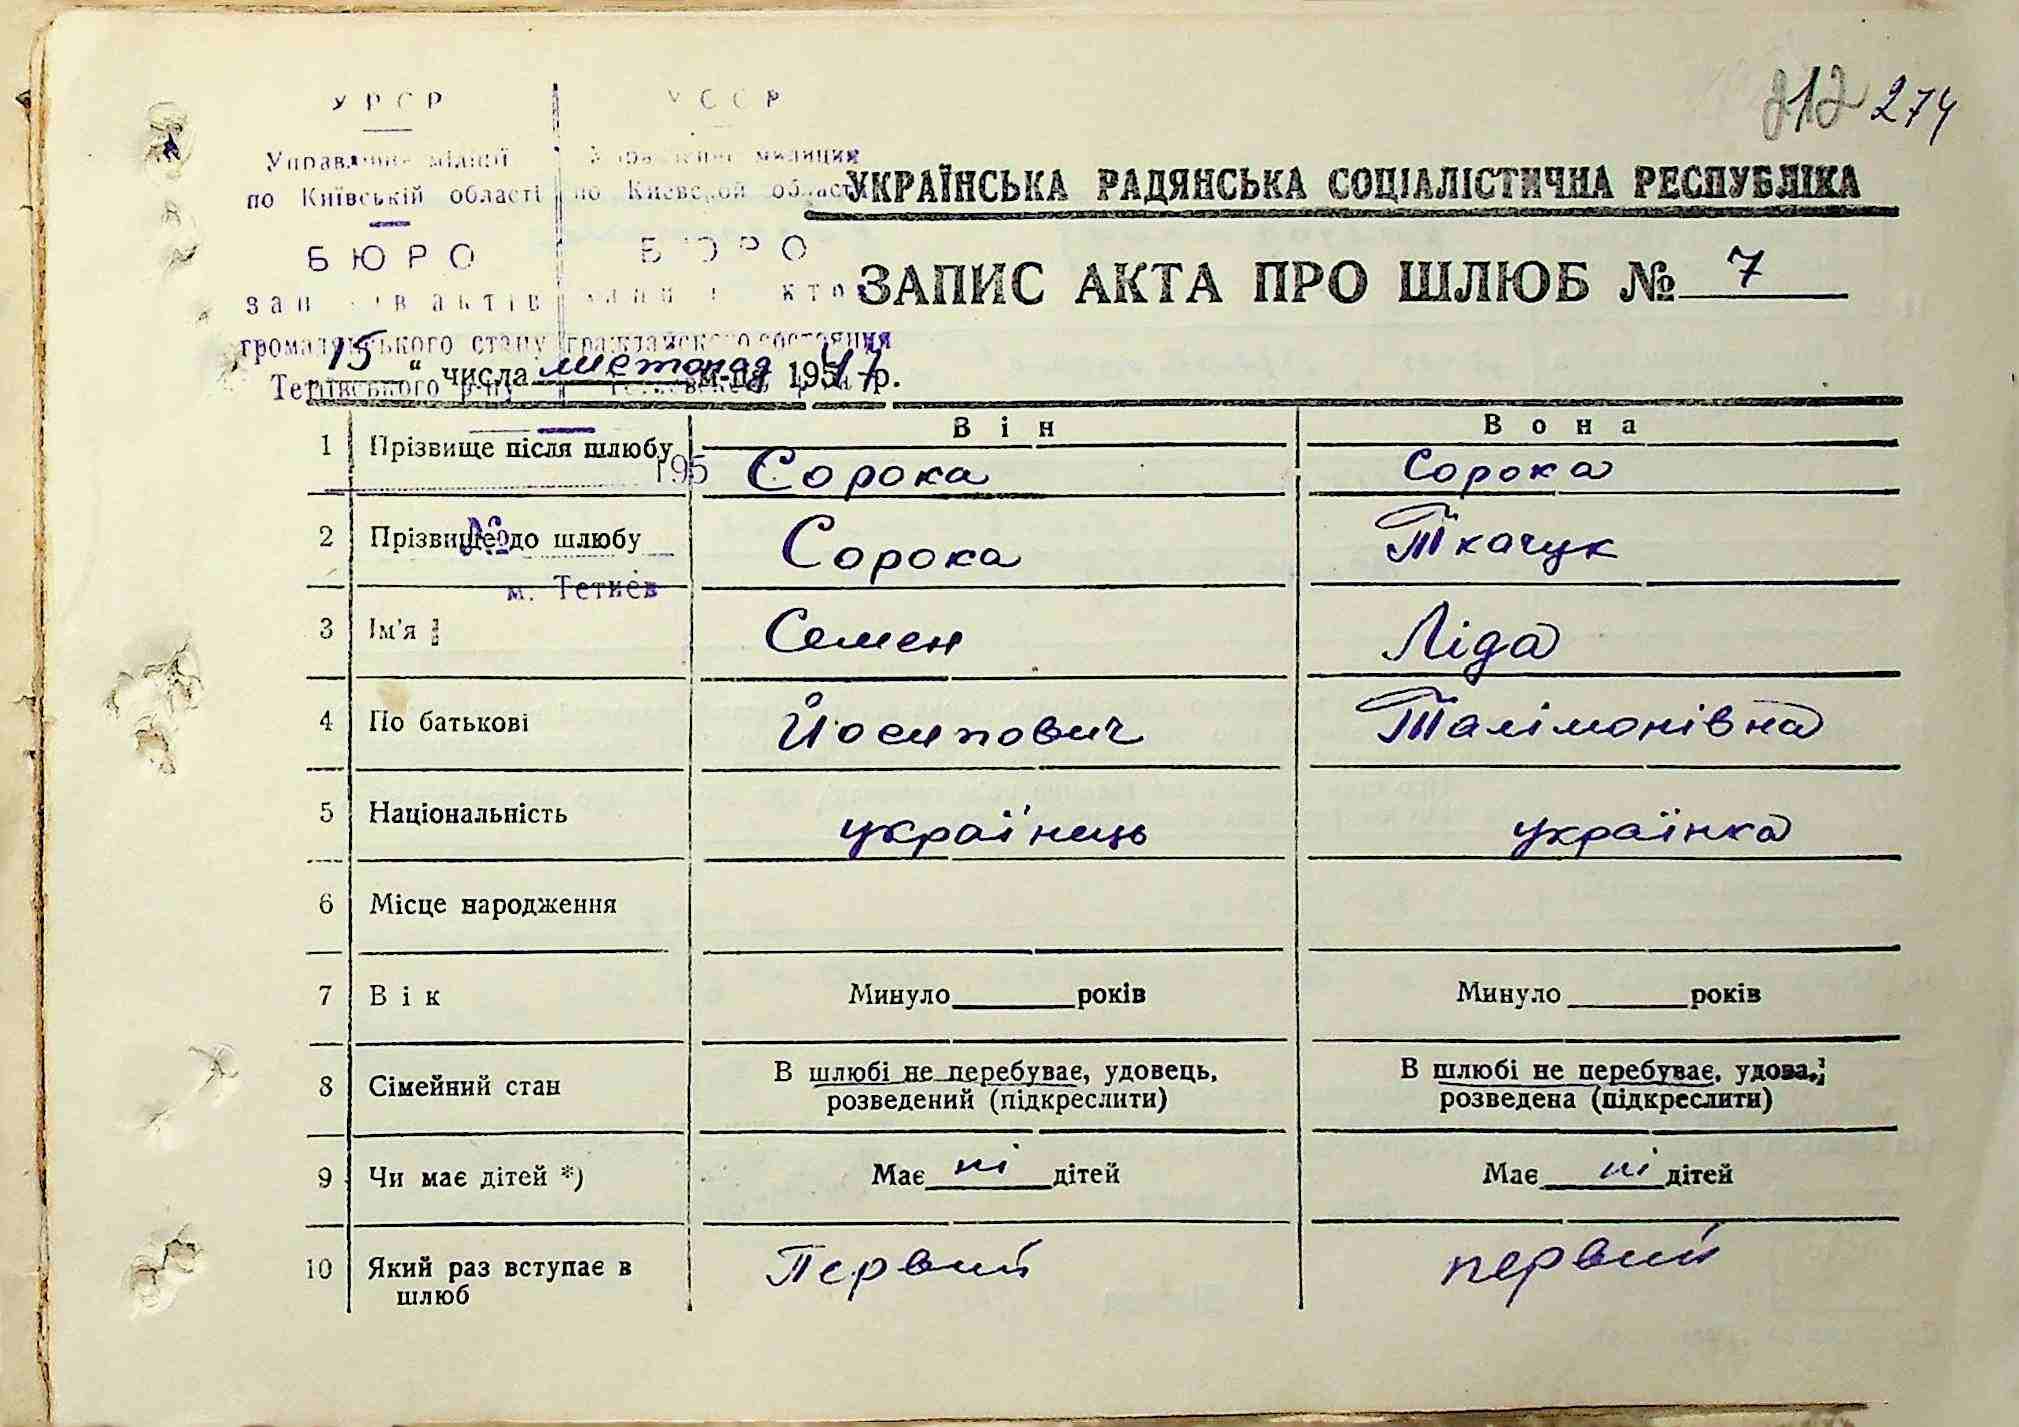 212 274
УРСР
Управління міліції
по Київській області
БЮРО
громадянського стану
Тетіївського р-ну
195
№
м. Тетиев
УССР
милиции
по Киевской области
БЮРО
гражданского состояния
УКРАЇНСЬКА РАДЯНСЬКА СОЦІАЛІСТИЧНА РЕСПУБЛІКА
ЗАПИС АКТА ПРО ШЛЮБ № 7
15 " числа листопад м-ця 19 р.
Він Вона
1 Прізвище після шлюбу Сорока Сорока
2 Прізвище до шлюбу Сорока Ткачук
3 Ім'я Семен Ліда
4 По батькові Йосипович Талімонівна
5 Національність українець українка
6 Місце народження
7 Вік Минуло років Минуло років
8 Сімейний стан В шлюбі не перебуває, удовець, розведений (підкреслити) В шлюбі не перебуває, удова, розведена (підкреслити)
9 Чи має дітей *) Має ні дітей Має ні дітей
10 Який раз вступає в шлюб Первий первий